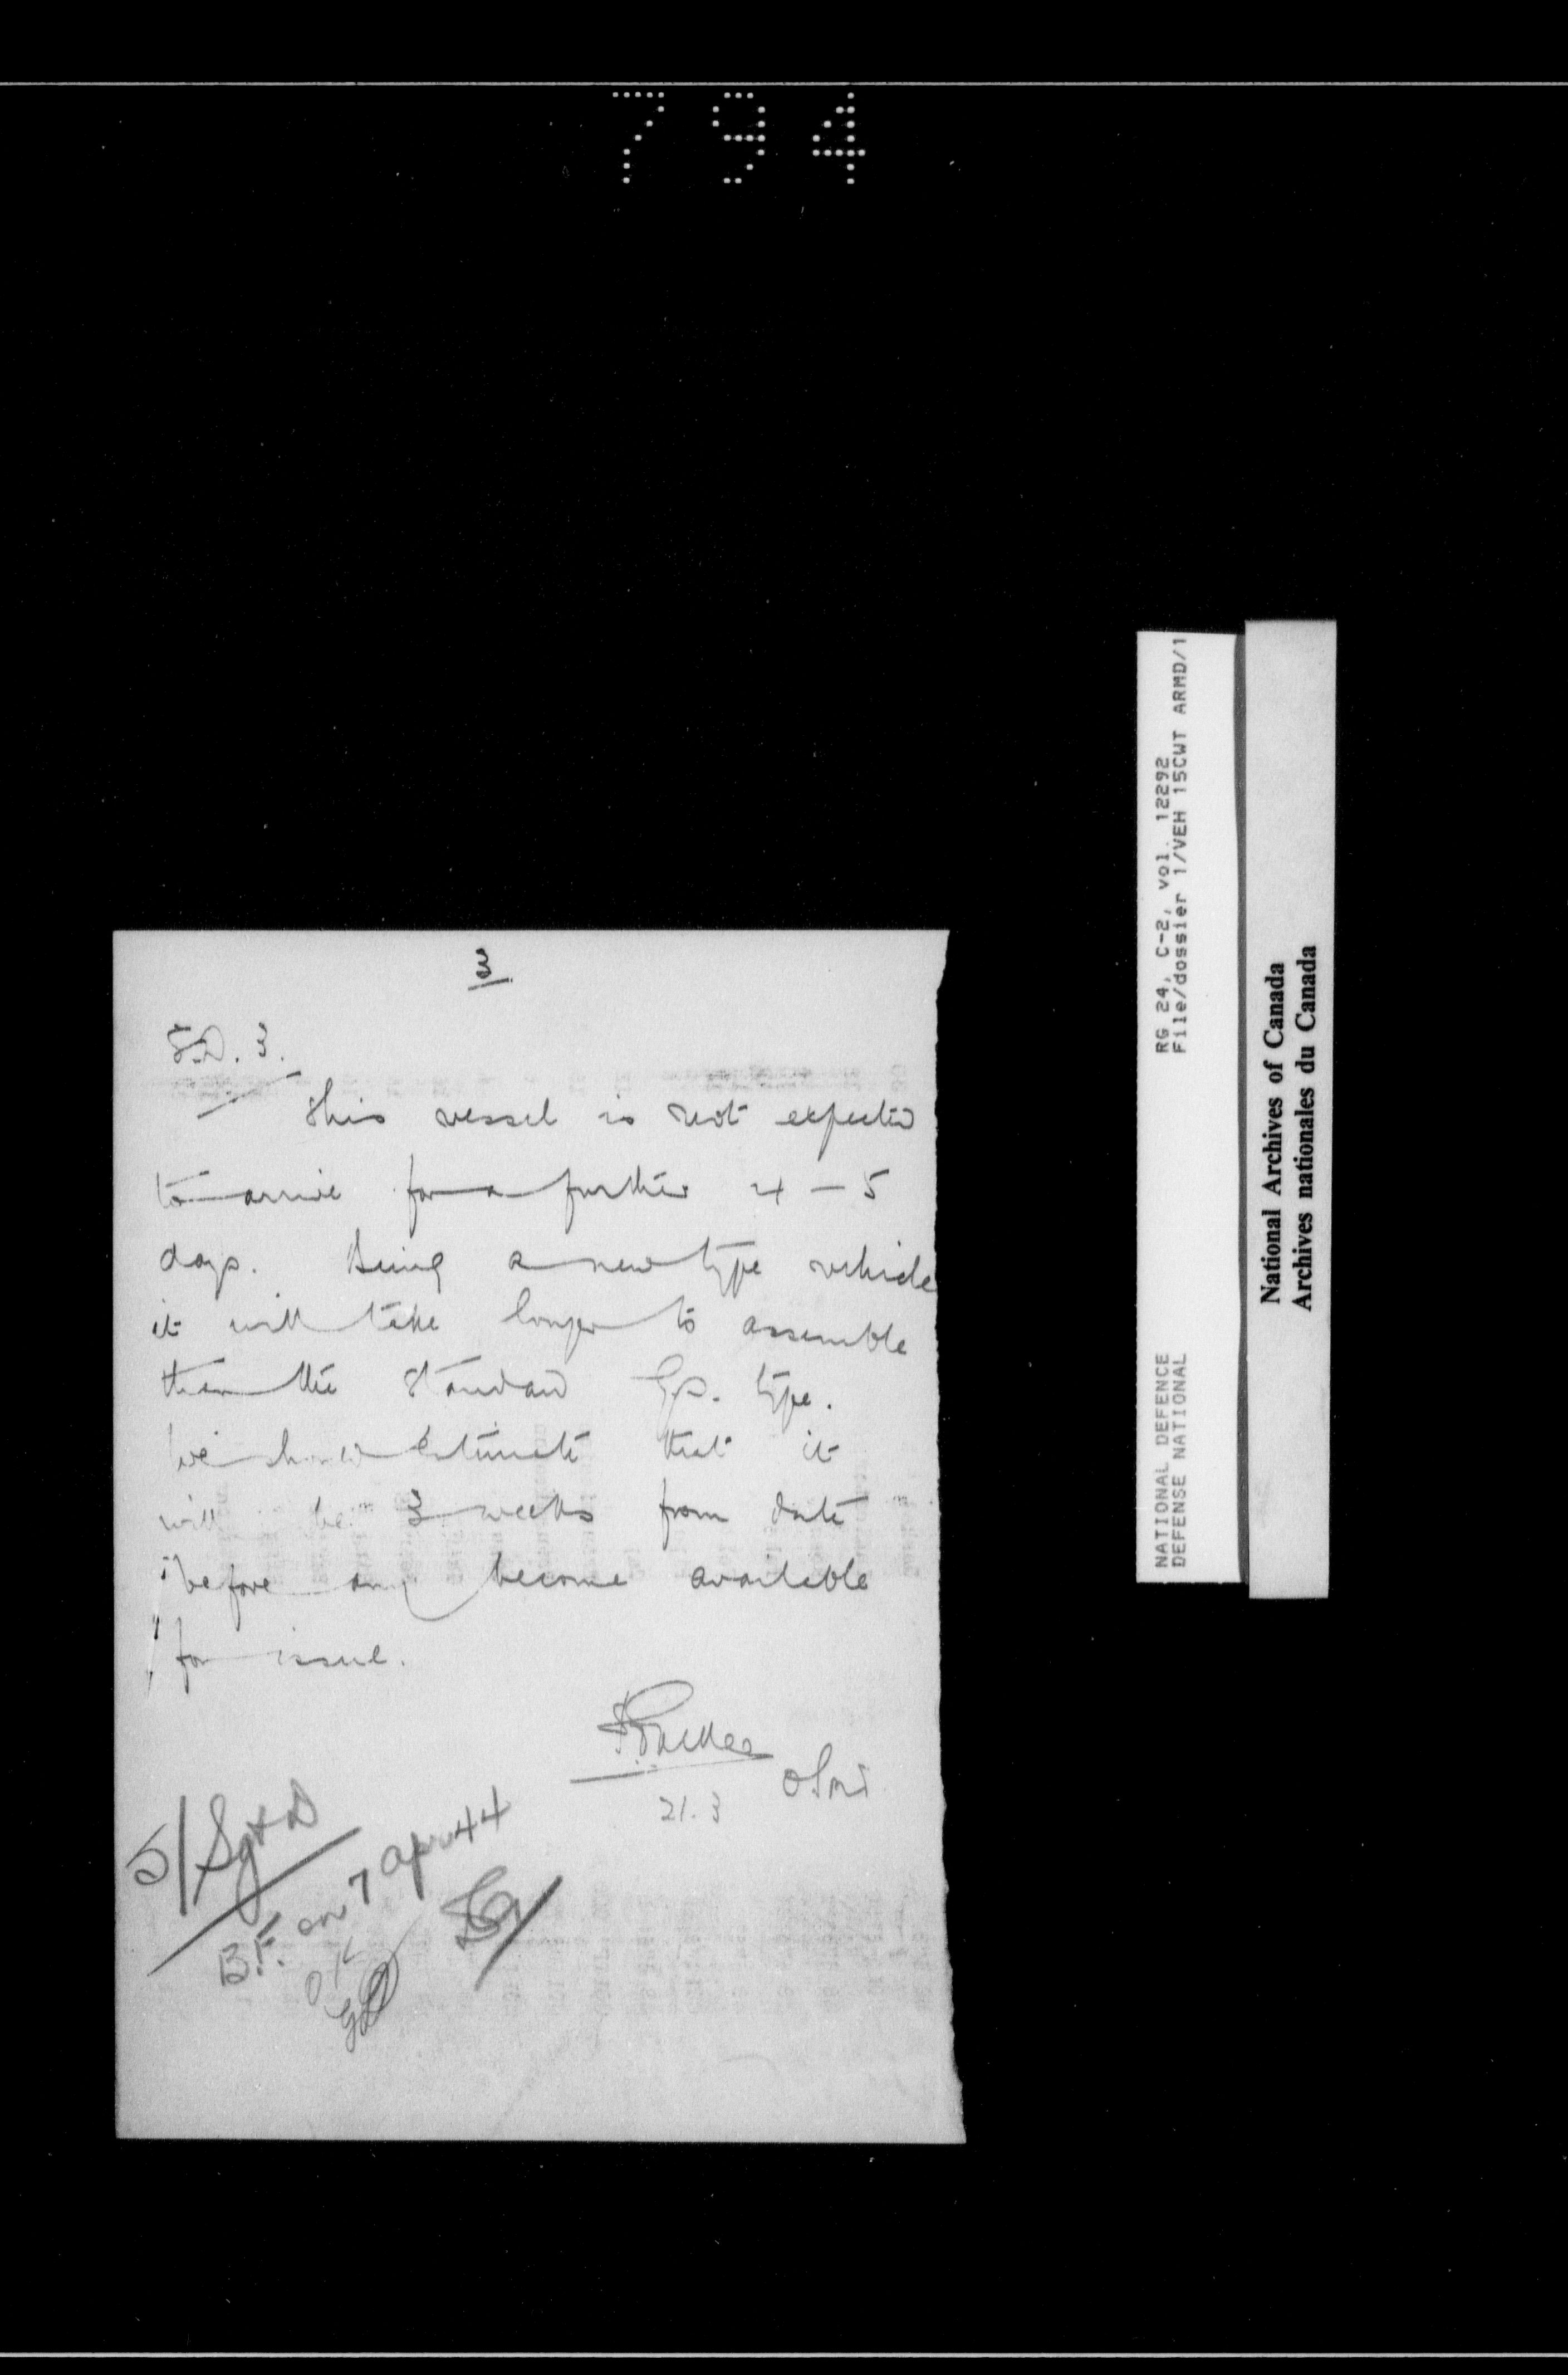 794
3
S.D. 3.
This vessel is not expected
to arrive for a further 4 – 5
days. Being a new type vehicle
it will take longer to assemble
than the standard Gp. type.
We should estimate that it
will be 3 weeks from date
before any become available
for issue.
21.3
5/
B.F. on 7 Apr 44
OK
RG 24, C-2, vol. 12292
File/dossier 1/VEH 15CWT ARMD/1
NATIONAL DEFENCE
DEFENSE NATIONAL
National Archives of Canada
Archives nationales du Canada